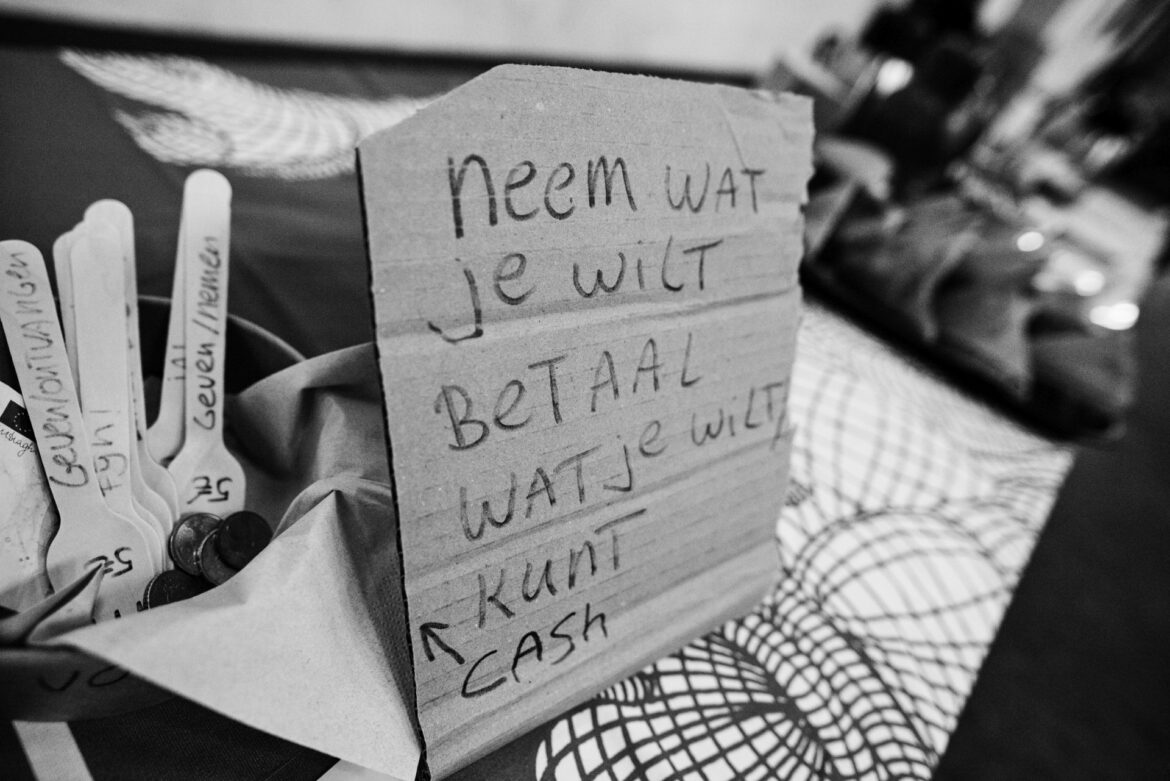 neem WAT
je wiLT
BeTAAL
WATje wiLT/
KunT
↖
CASH
Geven/ontvangen
Fijn!
JA!
Geven/nemen
5€
5€